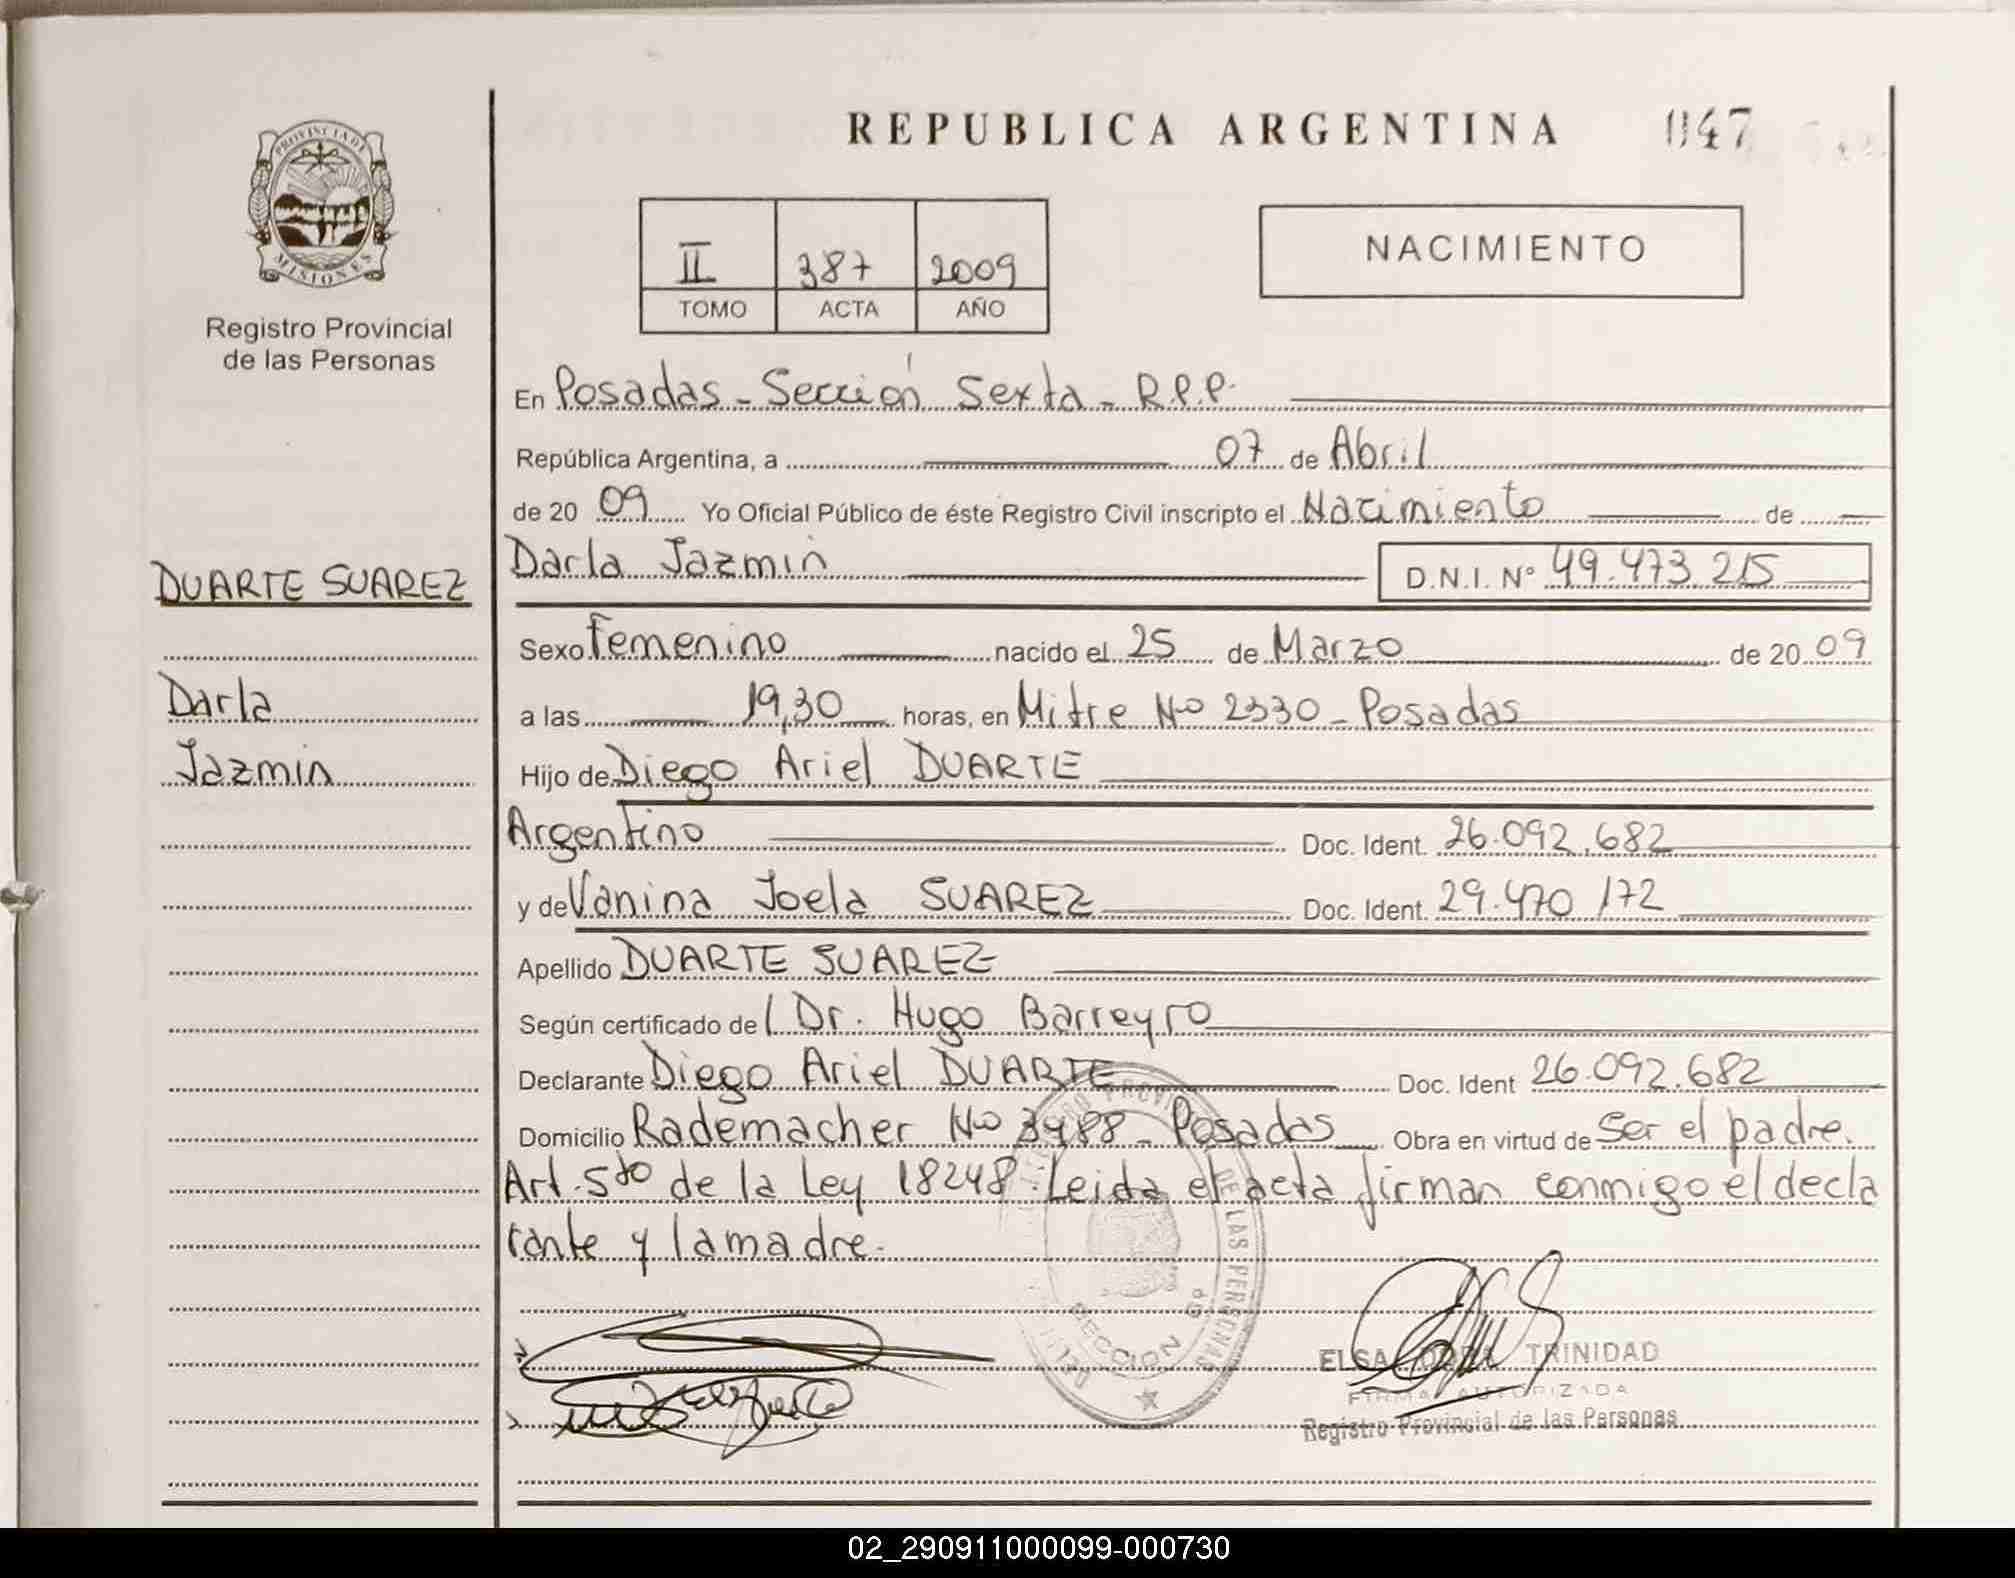 REPUBLICA ARGENTINA 047
PROVINCIA DE MISIONES
Registro Provincial
de las Personas
II 387 2009
TOMO ACTA AÑO
NACIMIENTO
En Posadas - Sección Sexta - R.P.P.
República Argentina, a 07 de Abril
de 20 09 Yo Oficial Público de éste Registro Civil inscripto el Nacimiento de
DUARTE SUAREZ
Darla Jazmin D.N.I. Nº 49.473.215
Sexo Femenino nacido el 25 de Marzo de 20 09
Darla
a las 19,30 horas, en Mitre Nº 2330 - Posadas
Jazmin
Hijo de Diego Ariel DUARTE
Argentino Doc. Ident. 26.092.682
y de Vanina Joela SUAREZ Doc. Ident. 29.470 172
Apellido DUARTE SUAREZ
Según certificado de l Dr. Hugo Barreyro
Declarante Diego Ariel DUARTE Doc. Ident 26.092.682
Domicilio Rademacher Nº 3488 - Posadas Obra en virtud de Ser el padre.
Art. 5to de la Ley 18248. Leida el acta firman conmigo el decla
rante y la madre.
DE LAS PERSONAS
SECCION 6º
ELSA TRINIDAD
FIRMA AUTORIZADA
Registro Provincial de las Personas
02_290911000099-000730